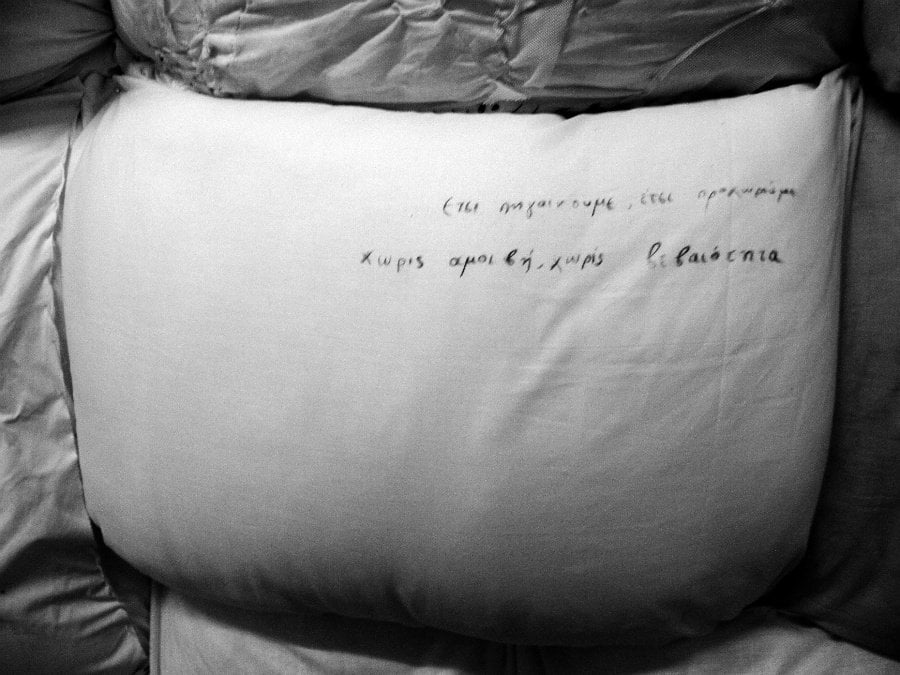 Έτσι πηγαίνουμε, έτσι προχωράμε
χωρις αμοιβή, χωρίς βεβαιότητα